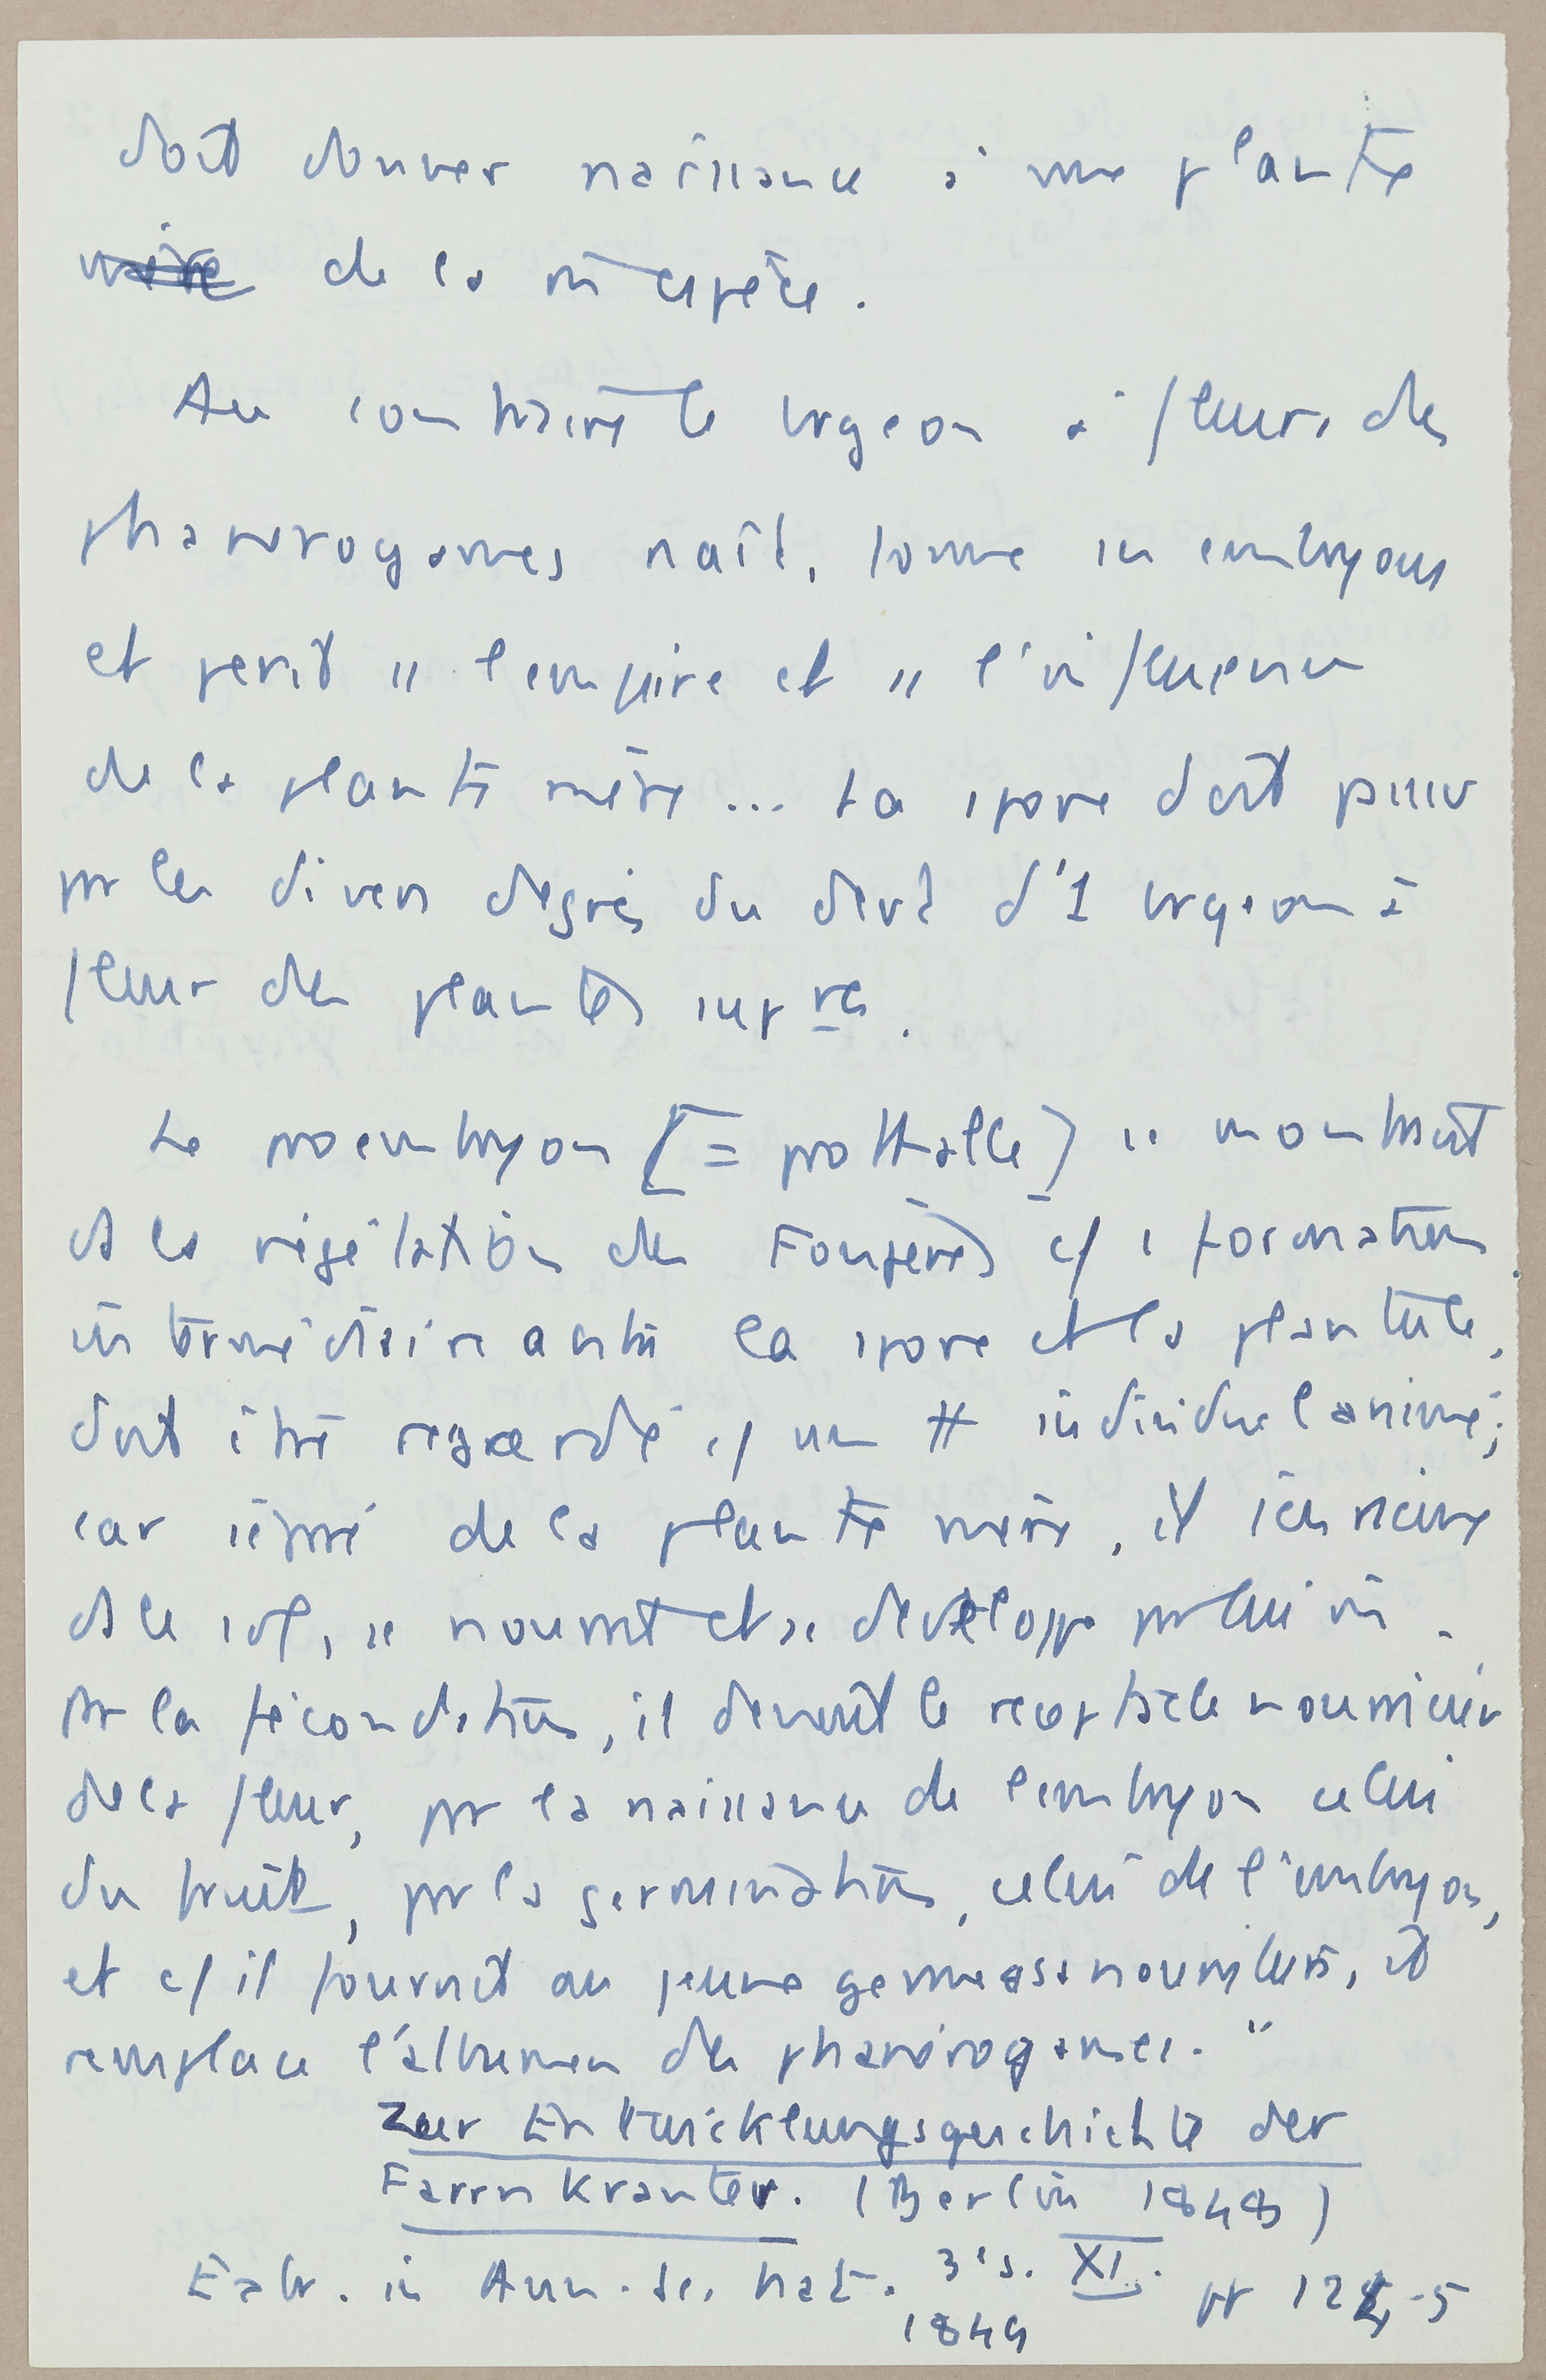 doit donner naissance à une plante
mère de la m̂ espèce.
Au contraire le bourgeon à fleurs des
phanerogames naît, comme ses embryons
et périt ss l'empire et ss l'influence
de la plante mère ... La spore doit passer
pr les divers degrés du devt d'1 bourgeon à
fleur des plantes supres.
Le proembryon [= prothalle] se montrait
ds la végétation des Fougères c/ 1 formation
intermédiaire entre la spore et la plantule,
doit être regardé c/ un # individuel animé;
car séparé de la plante mère, il s'enracine
ds le sol, se nourrit et se développe pr lui m̂.
Pr la fécondation, il devient le receptacle nourricier
de la fleur, pr la naissance de l'embryon celui
du fruit, pr la germination, celui de l'embryon,
et c/ il fournit au jeune germe sa nourriture, il
remplace l'albumen des phanérogames."
Zur Entwicklungsgeschichte der
Farrnkrauter. (Berlin 1848)
Extr. in Ann. Sc. nat. 3e s. XI. pp 124-5
1849